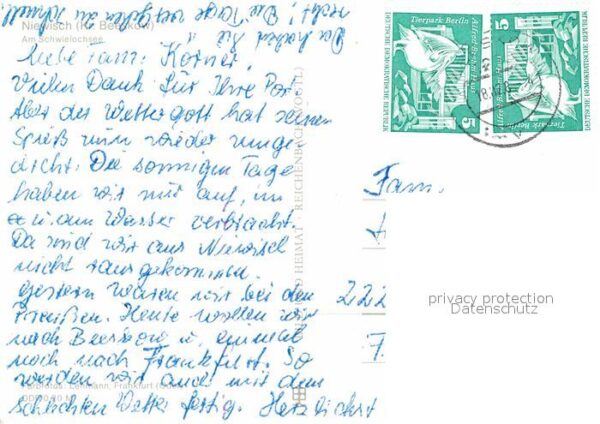 Niewisch (Kr. Beeskow)
Am Schwielochsee
Liebe Fam. Körner,
Vielen Dank für Ihre Post.
Aber der Wettergott hat seinen
Spieß nun wieder umge-
dreht. Die sonnigen Tage
haben wir nur auf, im
u. am Wasser verbracht.
Da sind wir aus Niewisch
nicht rausgekommen.
Gestern waren wir bei den
Preußen. Heute wollen wir
nach Beeskow u. einmal
noch nach Frankfurt. So
werden wir auch mit dem
schlechten Wetter fertig. Herzlichst
Da haben Sie
recht! Die Tage vergehen zu schnell
Fam.
222
7
BILD HEIMAT REICHENBACH (VOGTL)
Lehmann, Frankfurt (Oder)
Tierpark Berlin
Alfred-Brehm-Haus
DEUTSCHE DEMOKRATISCHE REPUBLIK
5
Tierpark Berlin
Alfred-Brehm-Haus
DEUTSCHE DEMOKRATISCHE REPUBLIK
5
privacy protection
Datenschutz